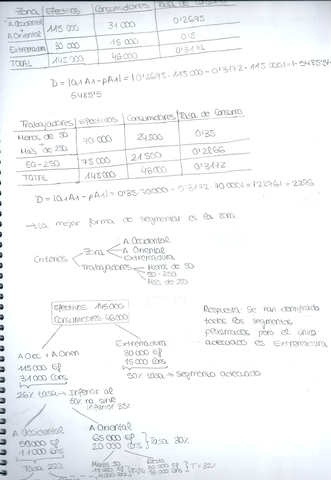 Zona Efectivos Consumidores Tasa de Consumo
A. Occidental + A. Oriental 115 000 31 000 0'2695
Extremadura 30 000 15 000 0'5
TOTAL 145000 46000 0'3172
D = |A1A1 - pA1| = |0'2695. 115 000 - 0'3172 . 115 000| =
5485'5
Trabajadores Efectivos Consumidores Tasa de Consumo
Menos de 50 + Más de 250 70 000 24500 0'35
50 - 250 75 000 21 500 0'2866
TOTAL 145000 46000 0'3172
D = |A1A1 - pA1| = 0'35. 70000 - 0'3172 . 70 000 = = 2296
→ La mejor forma de segmentar es la zona.
Criterios
Zona
A. Occidental
A. Oriental
Extremadura
Trabajadores
Menos de 50
50 - 250
Más de 250
Efectivos 145000
Consumidores 46000
Respuesta: Se han identificado
todos los segmentos
pero el único
adecuado es Extremadura
A Occ + A Orien
115 000 Ef
31 000 Cons
Extremadura
30 000 Ef
15 000 Cons
26% tasa → Inferior al
50% no sirve
inferior 35%
50% tasa → Segmento adecuado
A Occidental
50 000 Ef
11 000 Cons
Tasa 22%
A. Oriental
65 000 Ef
20 000 Cons
Tasa 30%
Menos 50
Resto
T = 32%